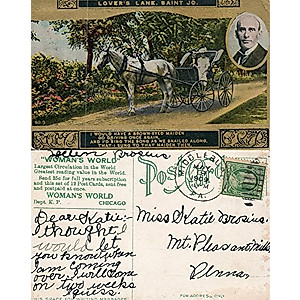 LOVER'S LANE, SAINT JO.
I WOULD HAVE A BROWN-EYED MAIDEN
GO DRIVING ONCE AGAIN,
AND I'D SING THE SONG AS WE SNAILED ALONG,
THAT I SUNG TO THAT MAIDEN THEN.
Brosius
WOMAN'S WORLD
Largest Circulation in the World
Greatest reading value in the World.
Send 25c for full years subscription
and this set of 12 Post Cards, sent free
and postpaid at once.
WOMAN'S WORLD
Dept. K. P. CHICAGO
Dear Katie
I thought I
would let
you know when
I am coming
over. I will come
on two weeks
I guess.
THIS SPACE FOR WRITING MESSAGES
POS
Miss Katie Brosius
Mt. Pleasant Mills
Penna
FOR ADDRESS ONLY